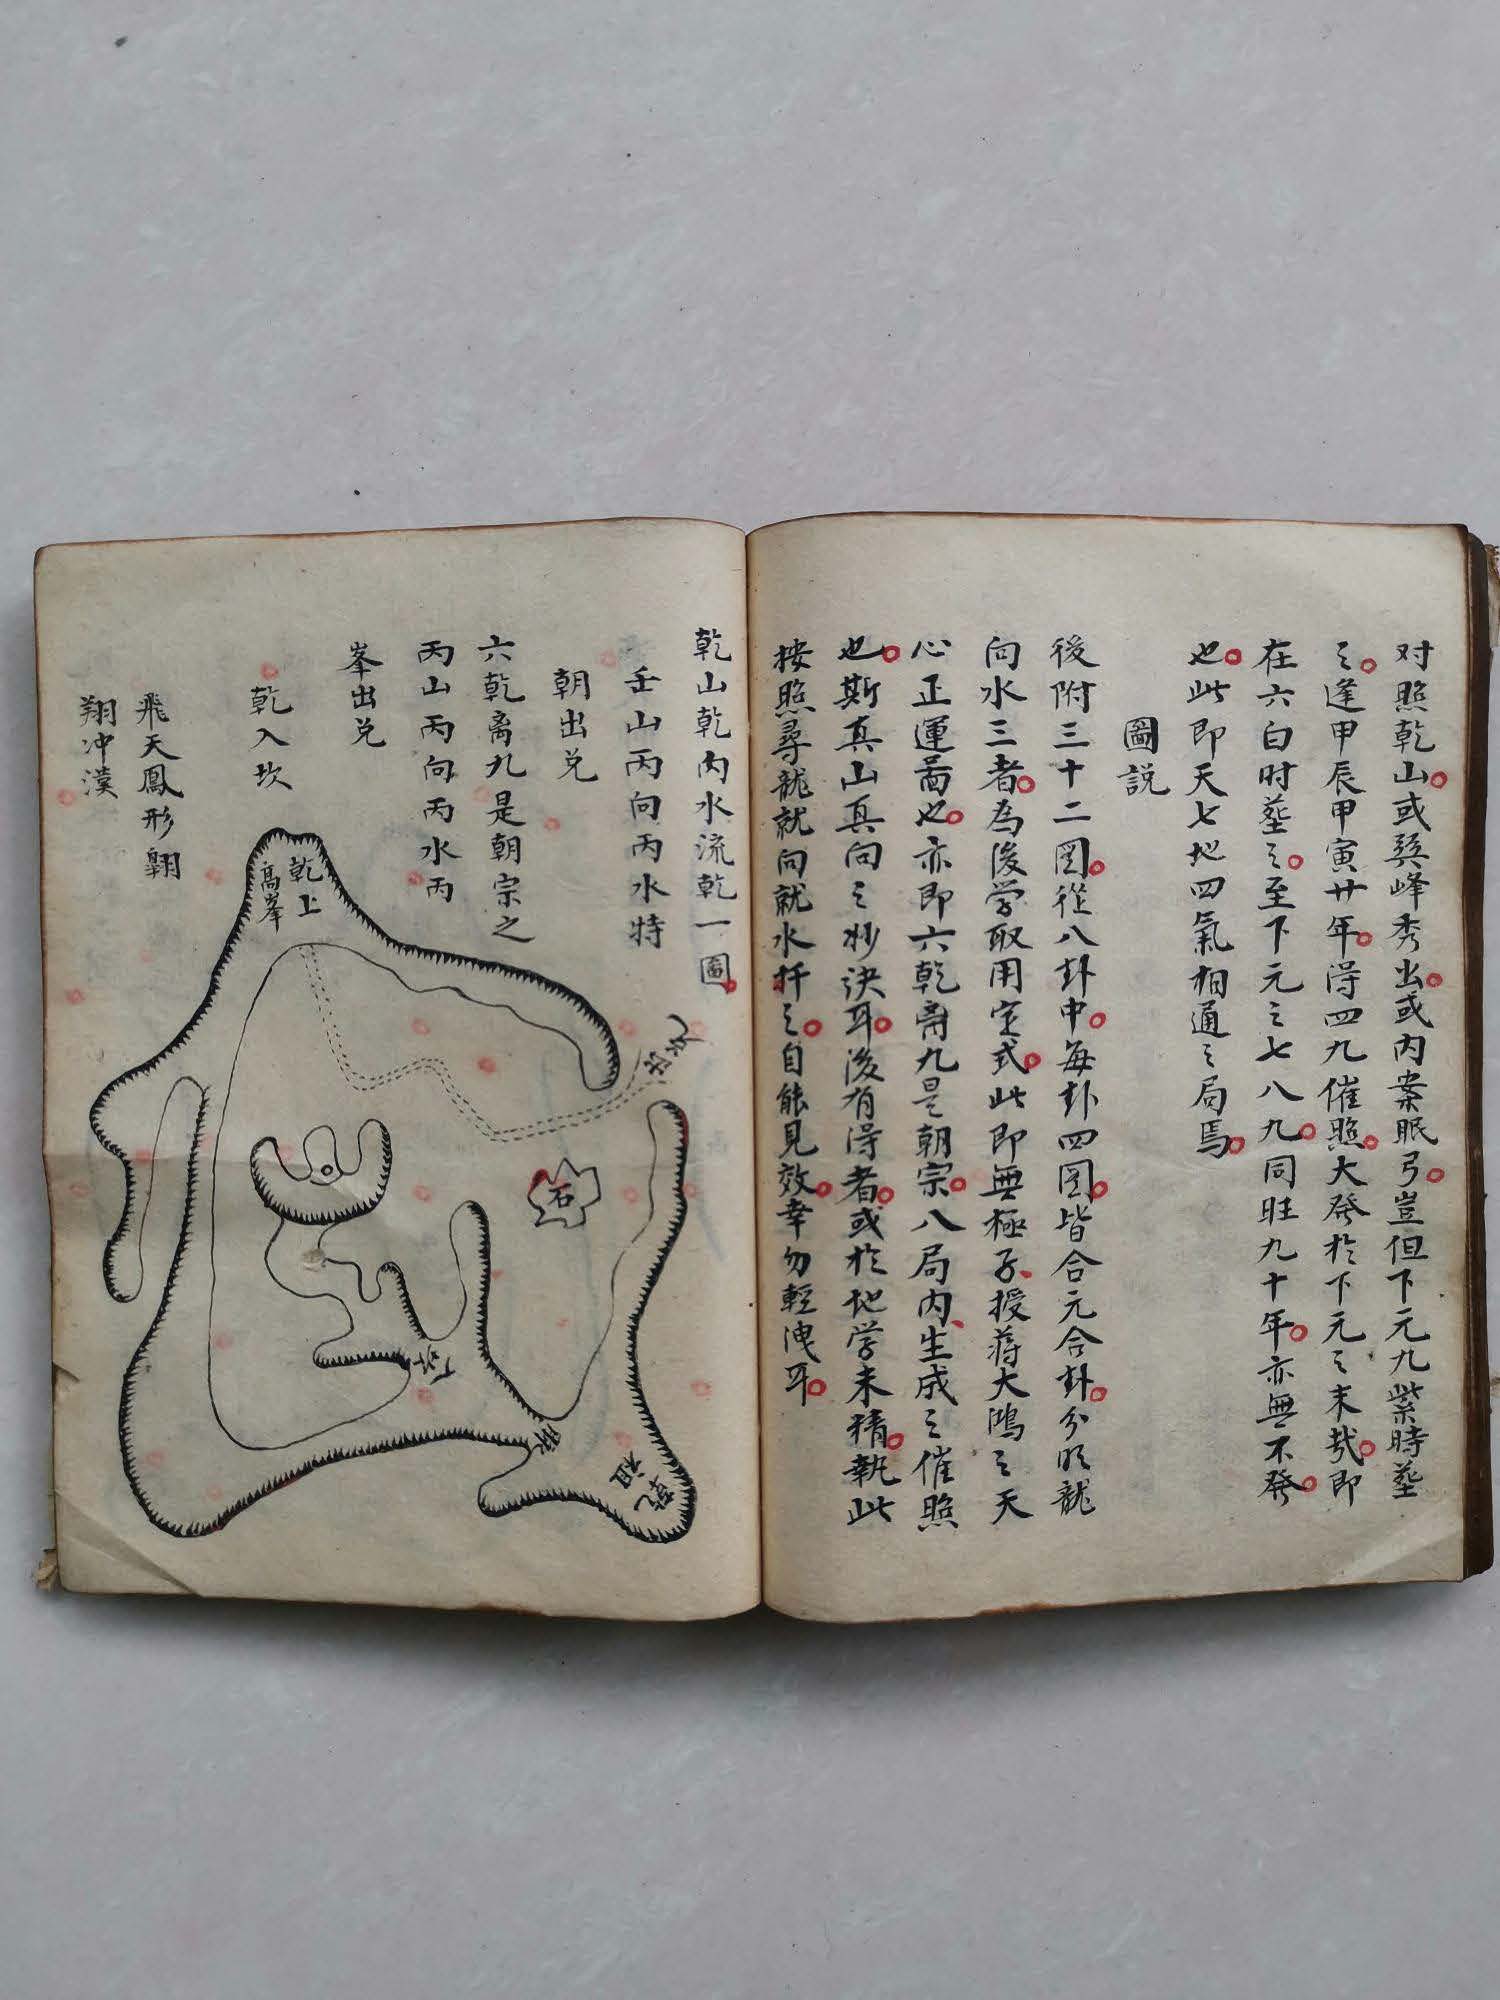 对照乾山或巽峰秀出或内案眠弓豈但下元九紫時塟
之逢甲辰甲寅廿年得四九催照大發於下元之末哉即
在六白时塟之至下元之七八九同旺九十年亦無不發
也此即天七地四氣相通之局焉
圖說
後附三十二图從八卦中每卦四图皆合元合卦分明龍
向水三者為後学取用定式此即無極子授蔣大鴻之天
心正運啚也亦即六乾离九是朝宗八局内生成之催照
也斯真山真向之妙訣耳後有得者或於地学未精執此
按照尋龍就向就水扦之自能見效幸勿輕洩耳
乾山乾内水流乾一圖
壬山丙向丙水特
朝出兑
六乾离九是朝宗之
丙山丙向丙水丙
峯出兑
乾入坎
飛天鳳形翱
翔冲漢
乾上
高峯
石
乾
祖